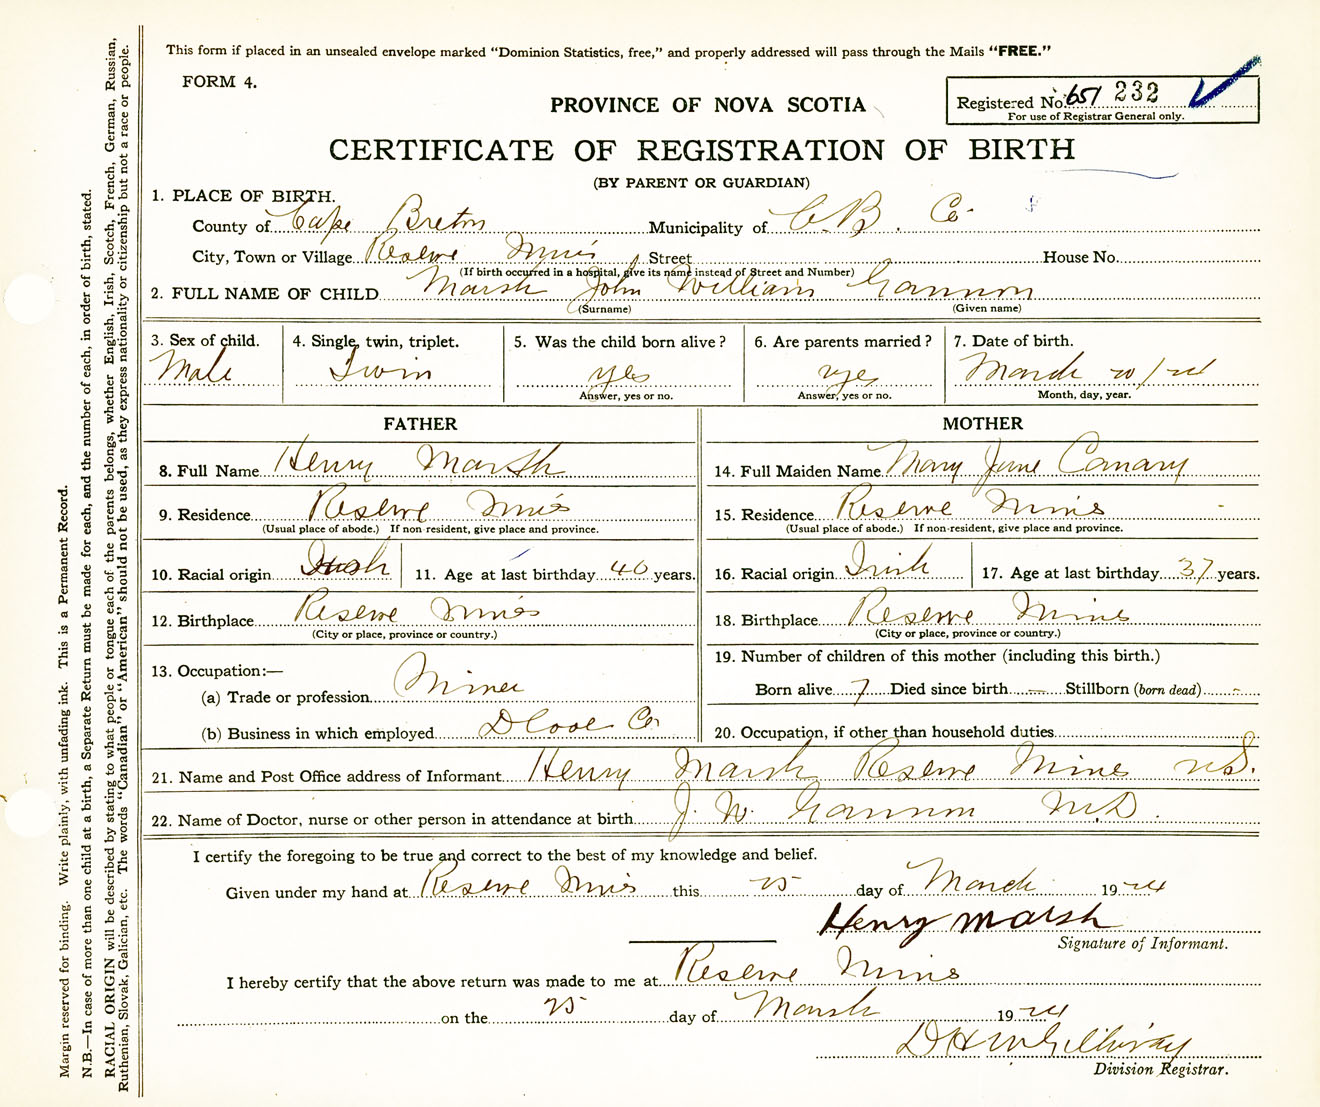 This form if placed in an unsealed envelope marked “Dominion Statistics, free,” and properly addressed will pass through the Mails “FREE.”
FORM 4.
Registered No. 651 232
For use of Registrar General only.
PROVINCE OF NOVA SCOTIA
CERTIFICATE OF REGISTRATION OF BIRTH
(BY PARENT OR GUARDIAN)
1. PLACE OF BIRTH.
County of Cape Breton Municipality of C.B. Co.
City, Town or Village Reserve Mines Street House No.
(If birth occurred in a hospital, give its name instead of Street and Number)
2. FULL NAME OF CHILD Marsh John William Gannon
(Surname) (Given name)
3. Sex of child. 4. Single, twin, triplet. 5. Was the child born alive? 6. Are parents married? 7. Date of birth.
Male Twin yes yes March 20/24
Answer, yes or no. Answer, yes or no. Month, day, year.
FATHER MOTHER
8. Full Name Henry Marsh 14. Full Maiden Name Mary Jane Canary
9. Residence Reserve Mines 15. Residence Reserve Mines
(Usual place of abode.) If non-resident, give place and province. (Usual place of abode.) If non-resident, give place and province.
10. Racial origin 11. Age at last birthday 40 years. 16. Racial origin Irish 17. Age at last birthday 37 years.
12. Birthplace Reserve Mines 18. Birthplace Reserve Mines
(City or place, province or country.) (City or place, province or country.)
13. Occupation:— 19. Number of children of this mother (including this birth.)
(a) Trade or profession Miner Born alive 7 Died since birth — Stillborn (born dead) -
(b) Business in which employed D Coal Co. 20. Occupation, if other than household duties
21. Name and Post Office address of Informant Henry Marsh Reserve Mines N.S.
22. Name of Doctor, nurse or other person in attendance at birth J. W. Gannon M.D.
I certify the foregoing to be true and correct to the best of my knowledge and belief.
Given under my hand at Reserve Mines this 25 day of March 1924
Henry Marsh
Signature of Informant.
I hereby certify that the above return was made to me at Reserve Mines
on the 25 day of March 1924
Division Registrar.
Margin reserved for binding. Write plainly, with unfading ink. This is a Permanent Record.
N.B.—In case of more than one child at a birth, a Separate Return must be made for each, and the number of each, in order of birth, stated.
RACIAL ORIGIN will be described by stating to what people or tongue each of the parents belongs, whether English, Irish, Scotch, French, German, Russian,
Ruthenian, Slovak, Galician, etc. The words “Canadian” or “American” should not be used, as they express nationality or citizenship but not a race or people.